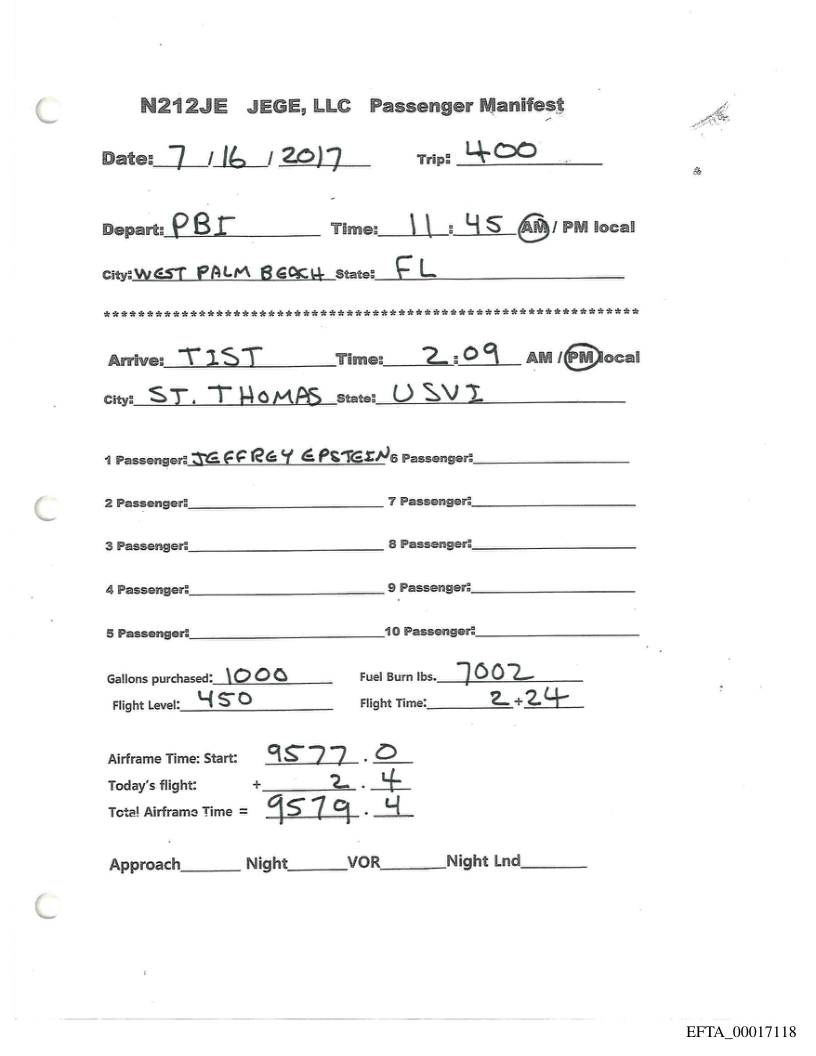 N212JE JEGE, LLC Passenger Manifest
Date: 7 / 16 / 2017 Trip: 400
Depart: PBI Time: 11 : 45 AM / PM local
City: WEST PALM BEACH State: FL
**************************************************************
Arrive: TIST Time: 2:09 AM / PM local
City: ST. THOMAS State: USVI
1 Passenger: JEFFREY EPSTEIN 6 Passenger:
2 Passenger: 7 Passenger:
3 Passenger: 8 Passenger:
4 Passenger: 9 Passenger:
5 Passenger: 10 Passenger:
Gallons purchased: 1000 Fuel Burn lbs. 7002
Flight Level: 450 Flight Time: 2+24
Airframe Time: Start: 9577.0
Today's flight: + 2.4
Total Airframe Time = 9579.4
Approach Night VOR Night Lnd
EFTA_00017118